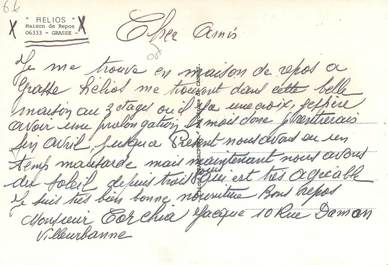 64
" HELIOS "
Maison de Repos
06333 - GRASSE -
Cher Amis
Je me trouve en maison de repos a
Grasse hélios me trouvant dans cette belle
maison au 3 etage ou il ya une croix, j'espère
avoir une prolongation mais donc
fin avril, jusqua Présent nous avons eu un
temps maussade mais maintenant nous avons
du soleil depuis trois jours qui est très agréable
Je suis très bien bonne nourriture Bons repos
Monsieur Torchia Jacque 10 Rue Damon
Villeurbanne